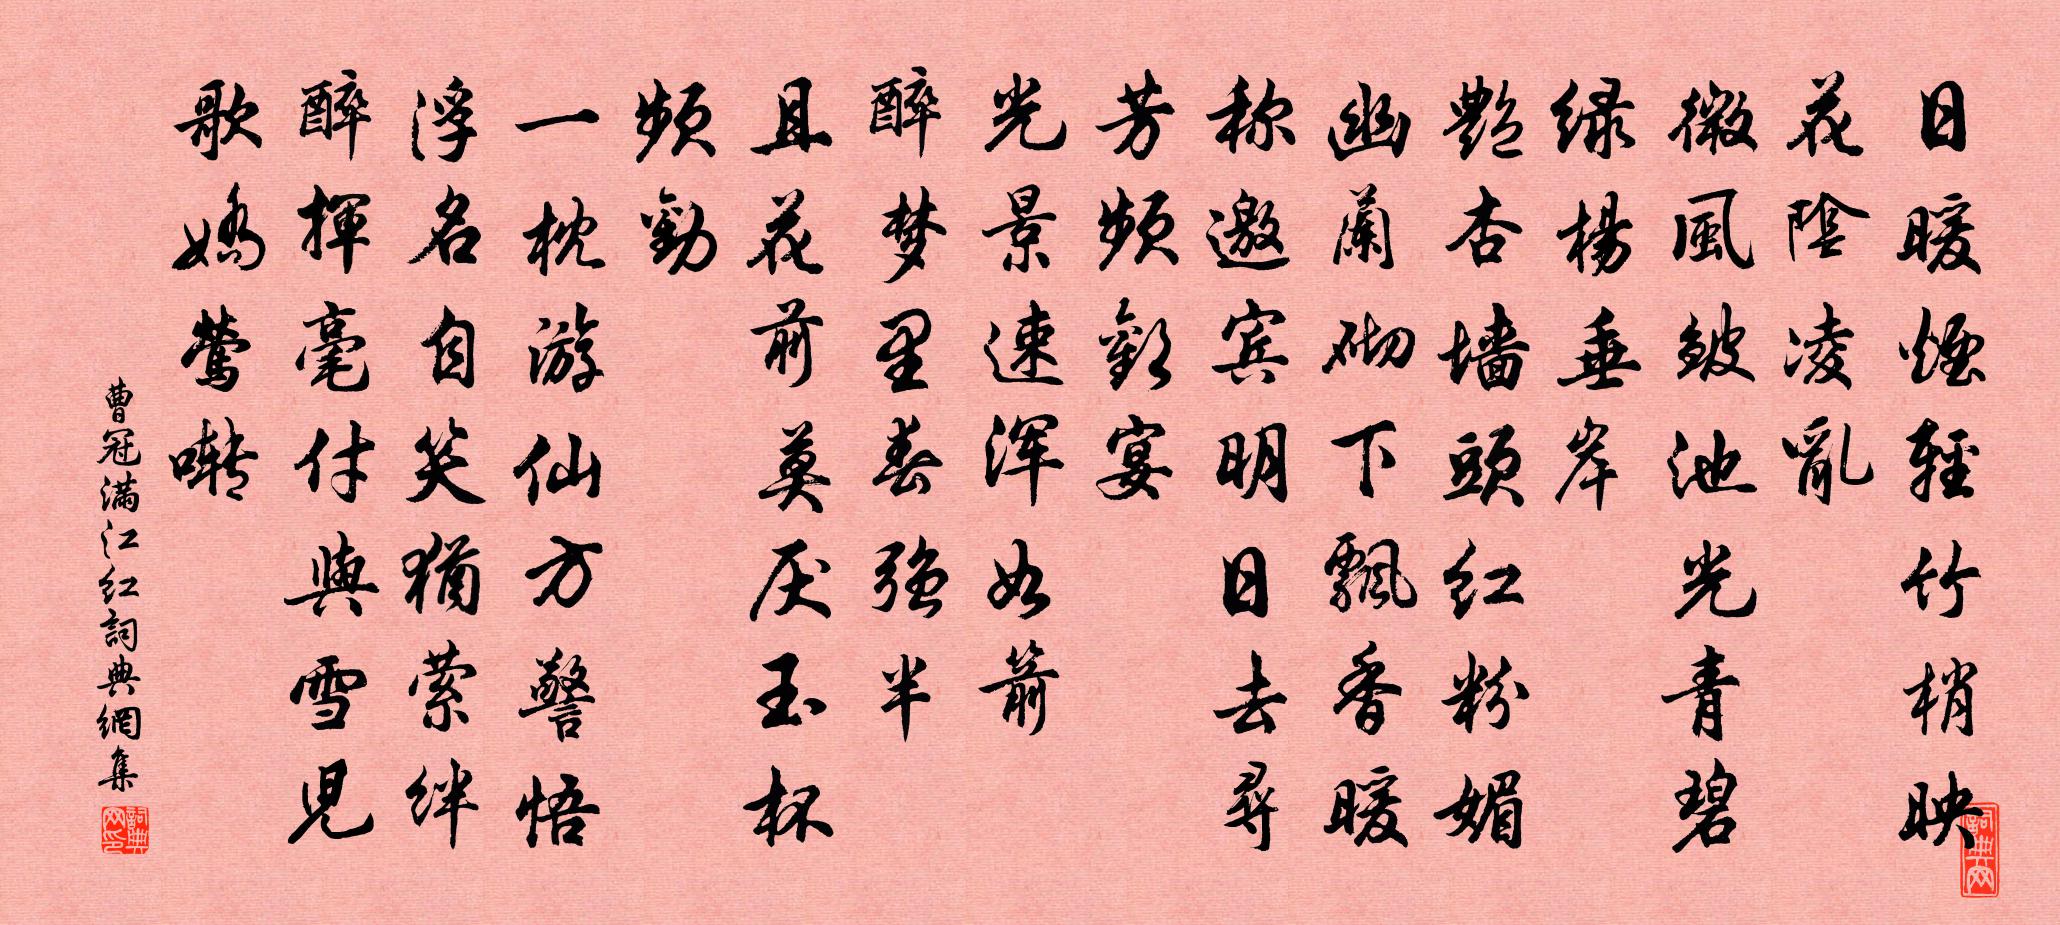 日暖煙輕竹梢映
花陰凌亂
微風皺池光青碧
緑楊垂岸
艷杏墙頭红粉媚
幽蘭砌下飄香暖
称邀宾明日去尋
芳頻歡宴
光景速浑如箭
醉梦里春强半
且花前莫厌玉杯
頻勸
一枕游仙方警悟
浮名自笑猶萦绊
醉揮毫付與雪兒
歌嬌鶯囀
曹冠滿江红詞典網集
詞典网印
詞典网